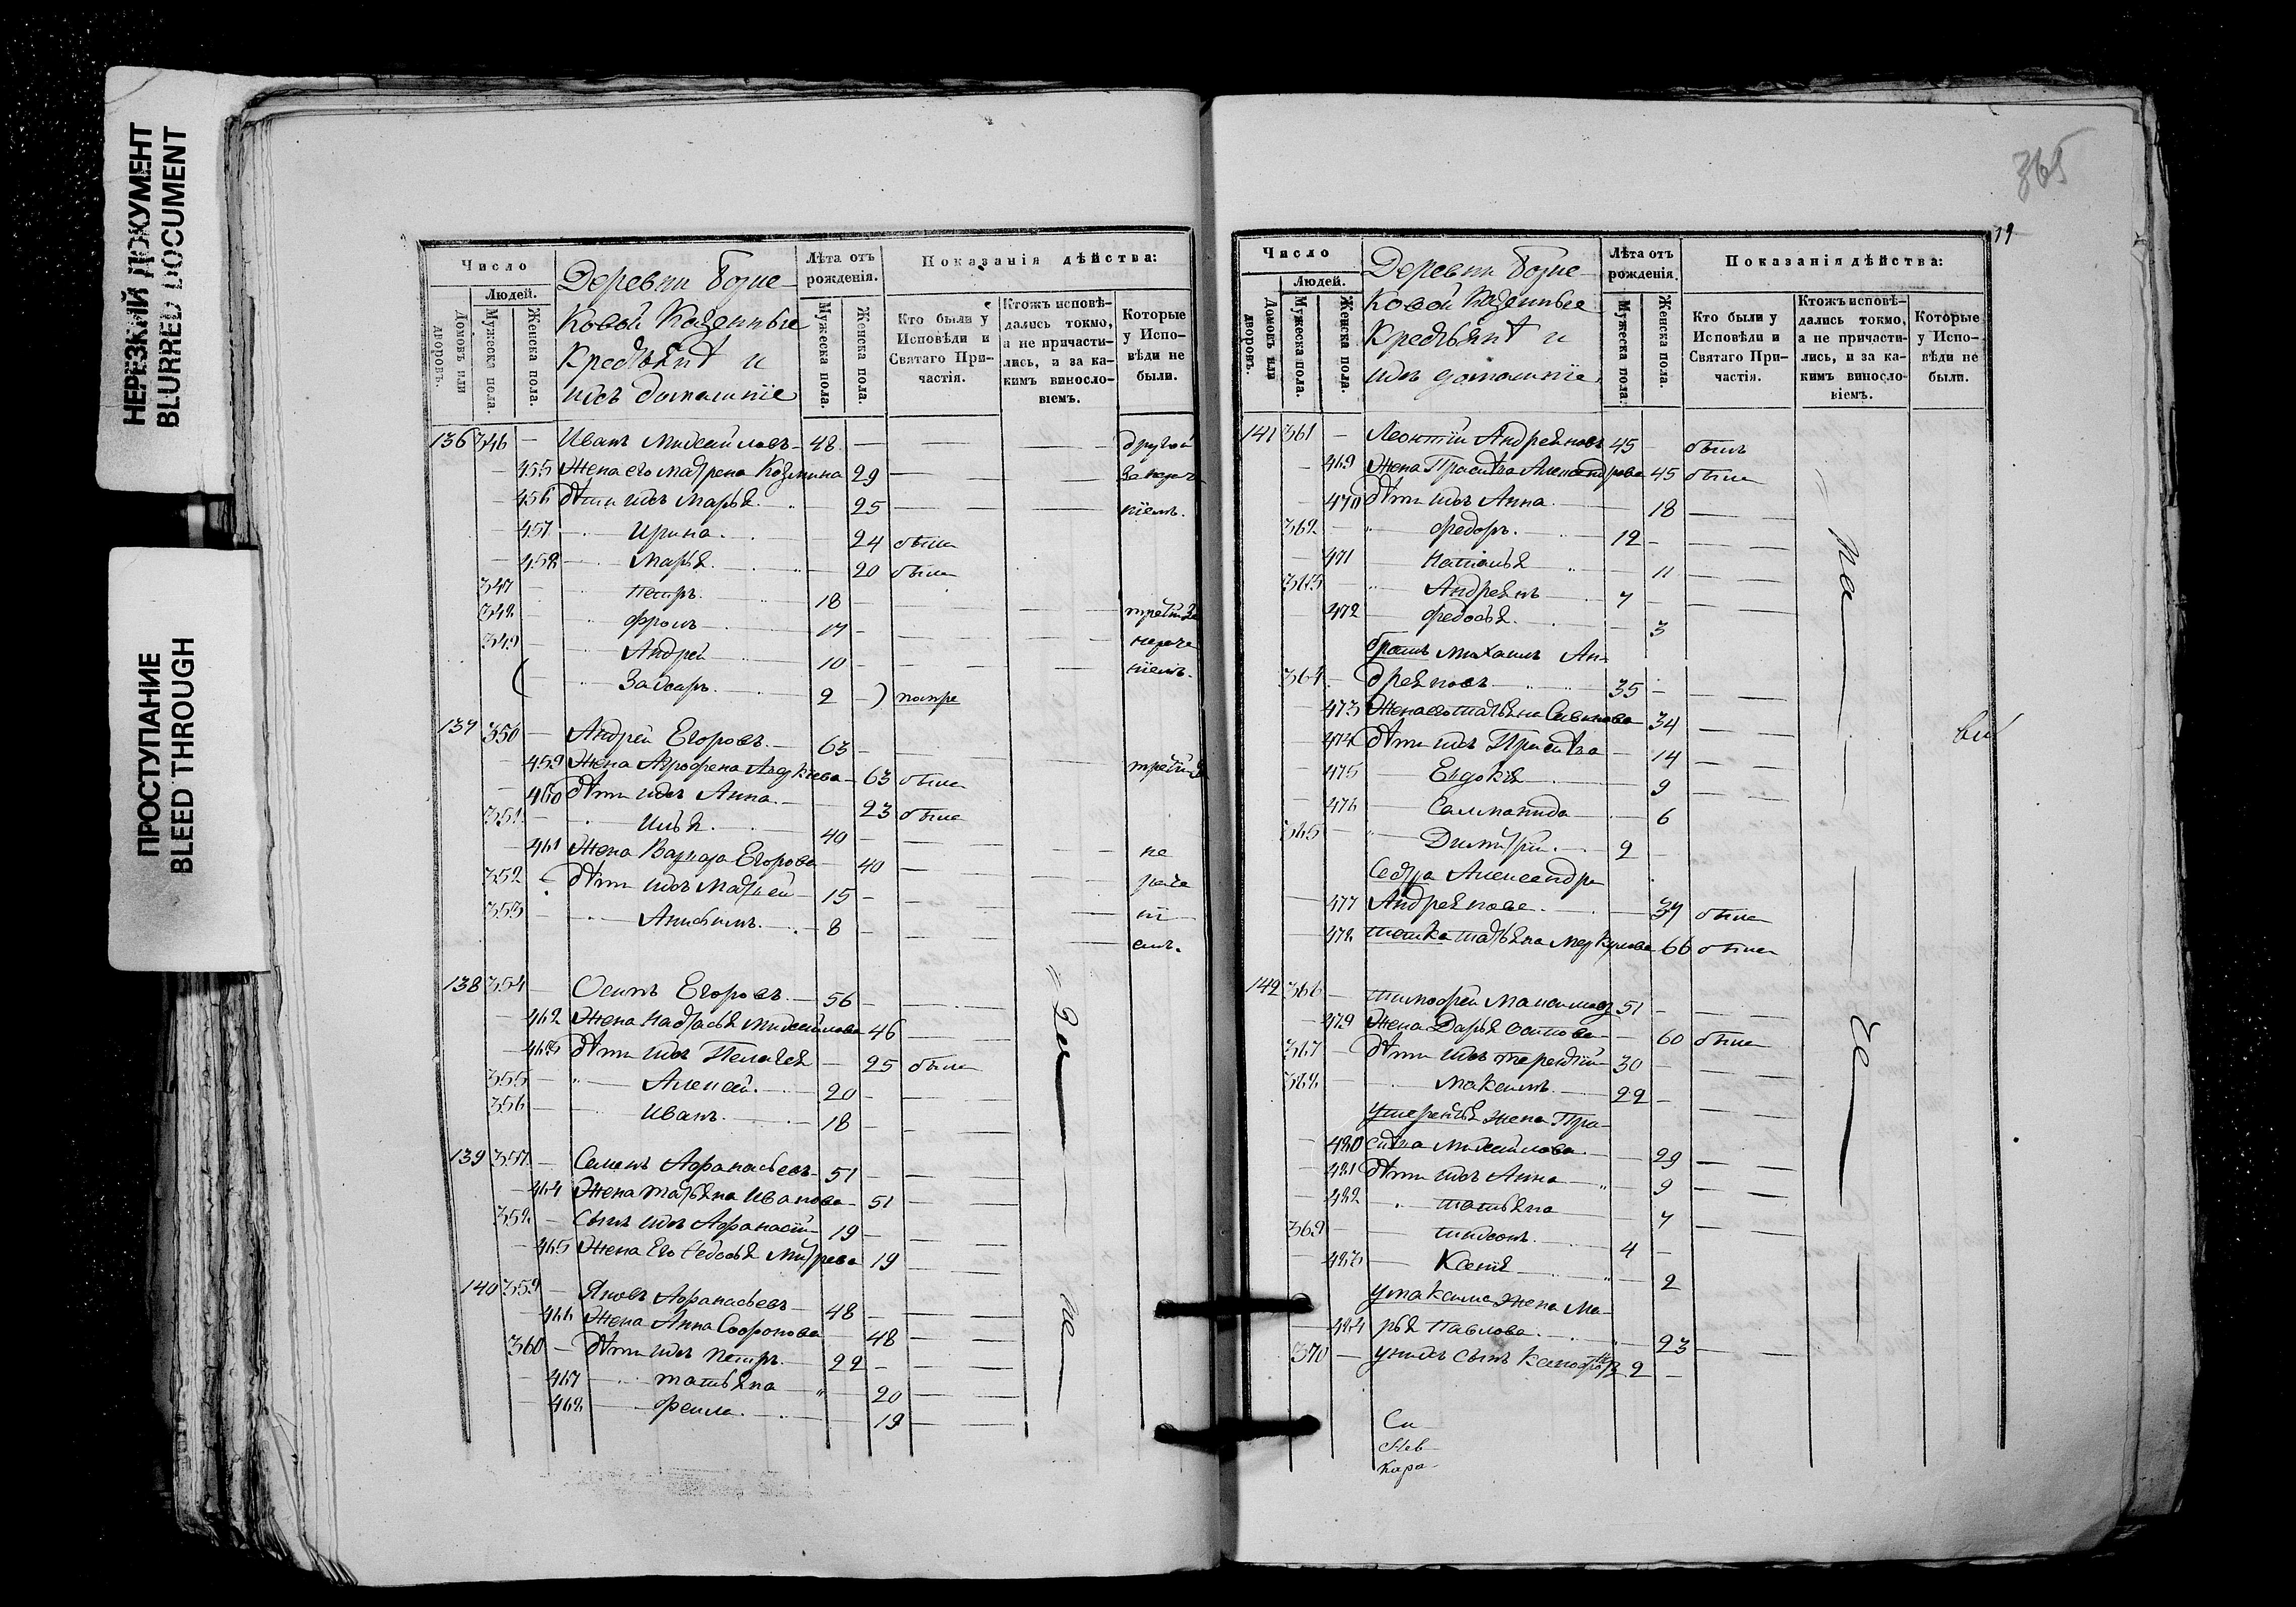 НЕРЕЗКИЙ ДОКУМЕНТ
BLURRED DOCUMENT
ПРОСТУПАНИЕ
BLEED THROUGH
Число
Людей.
Домовъ или дворовъ.
Мужеска пола.
Женска пола.
Деревни
ковой Казенные
Крестьянѣ и
ихъ домашніе
Лѣта отъ рожденія.
Мужеска пола.
Женска пола.
Показанія дѣйства:
Кто были у Исповѣди и Святаго Причастія.
Ктожъ исповѣдались токмо, а не причастились, и за какимъ винословіемъ.
Которые у Исповѣди не были.
136 346 — Иванъ Михайловъ 48 — другой
455 Жена его Матрена Козмина 29 — за нераче
456 дѣти ихъ Марья 25 ніемъ.
457 Ирина 24 была
458 Марья 20 была
347 Петръ 18
348 Фролъ 17 нераче
349 Андрей 10 ніемъ.
( Захаръ 2 )
137 350 — Андрей Егоровъ 63
459 Жена Агрофена 63 была
460 дѣти ихъ Анна 23 была
351 Илья 40
461 Жена Варвара Егорова 40 не
352 дѣти ихъ Матвей 15 раче
353 8 ні
емъ.
138 354 — Осипъ Егоровъ 56
462 Жена Настасья Михайлова 46
463 дѣти ихъ Пелагея 25 была
355 Алексей 20
356 Иванъ 18
139 357 — Семенъ Афанасьевъ 51
464 Жена Татьяна Иванова 51
358 — Сынъ ихъ Афанасій 19
465 Жена Его Федосья 19
140 359 — Яковъ Афанасьевъ 48
466 Жена Анна Софронова 48
360 — дѣти ихъ Петръ 22
467 Татьяна 20
468 Фекла 19
За
не
365
19
Число
Людей.
Домовъ или дворовъ.
Мужеска пола.
Женска пола.
Деревни
ковой Казенные
Крестьянѣ и
ихъ домашніе
Лѣта отъ рожденія.
Мужеска пола.
Женска пола.
Показанія дѣйства:
Кто были у Исповѣди и Святаго Причастія.
Ктожъ исповѣдались токмо, а не причастились, и за какимъ винословіемъ.
Которые у Исповѣди не были.
141 361 — Леонтій Андреяновъ 45 — былъ
469 Жена Прасковья Александрова 45 была
470 дѣти ихъ Анна 18
362 Федоръ 12
471 Наталья 11
363 Андреянъ 7
472 Федосья 3
братъ Михаилъ Ан-
364 дреяновъ 35
473 Жена его Татьяна 34
474 дѣти ихъ 14
475 Евдокія 9
476 Саломанида 6
365 Дмитрій 2
Сестра Александра
477 Андреянова 37 была
478 тетка Татьяна Меркулова 66 была
142 366 — Тимофей Максимовъ 51
479 Жена Дарья Осипова 60 была
367 — дѣти ихъ Терентій 30
368 Максимъ 22
у Терентья жена Пра-
480 Михайлова 29
481 дѣти ихъ Анна 9
482 Татьяна 7
369 Тихонъ 4
483 Ксенія 2
у Максима жена Ма-
484 рья Павлова 23
370 — у нихъ сынъ 2
ра
че